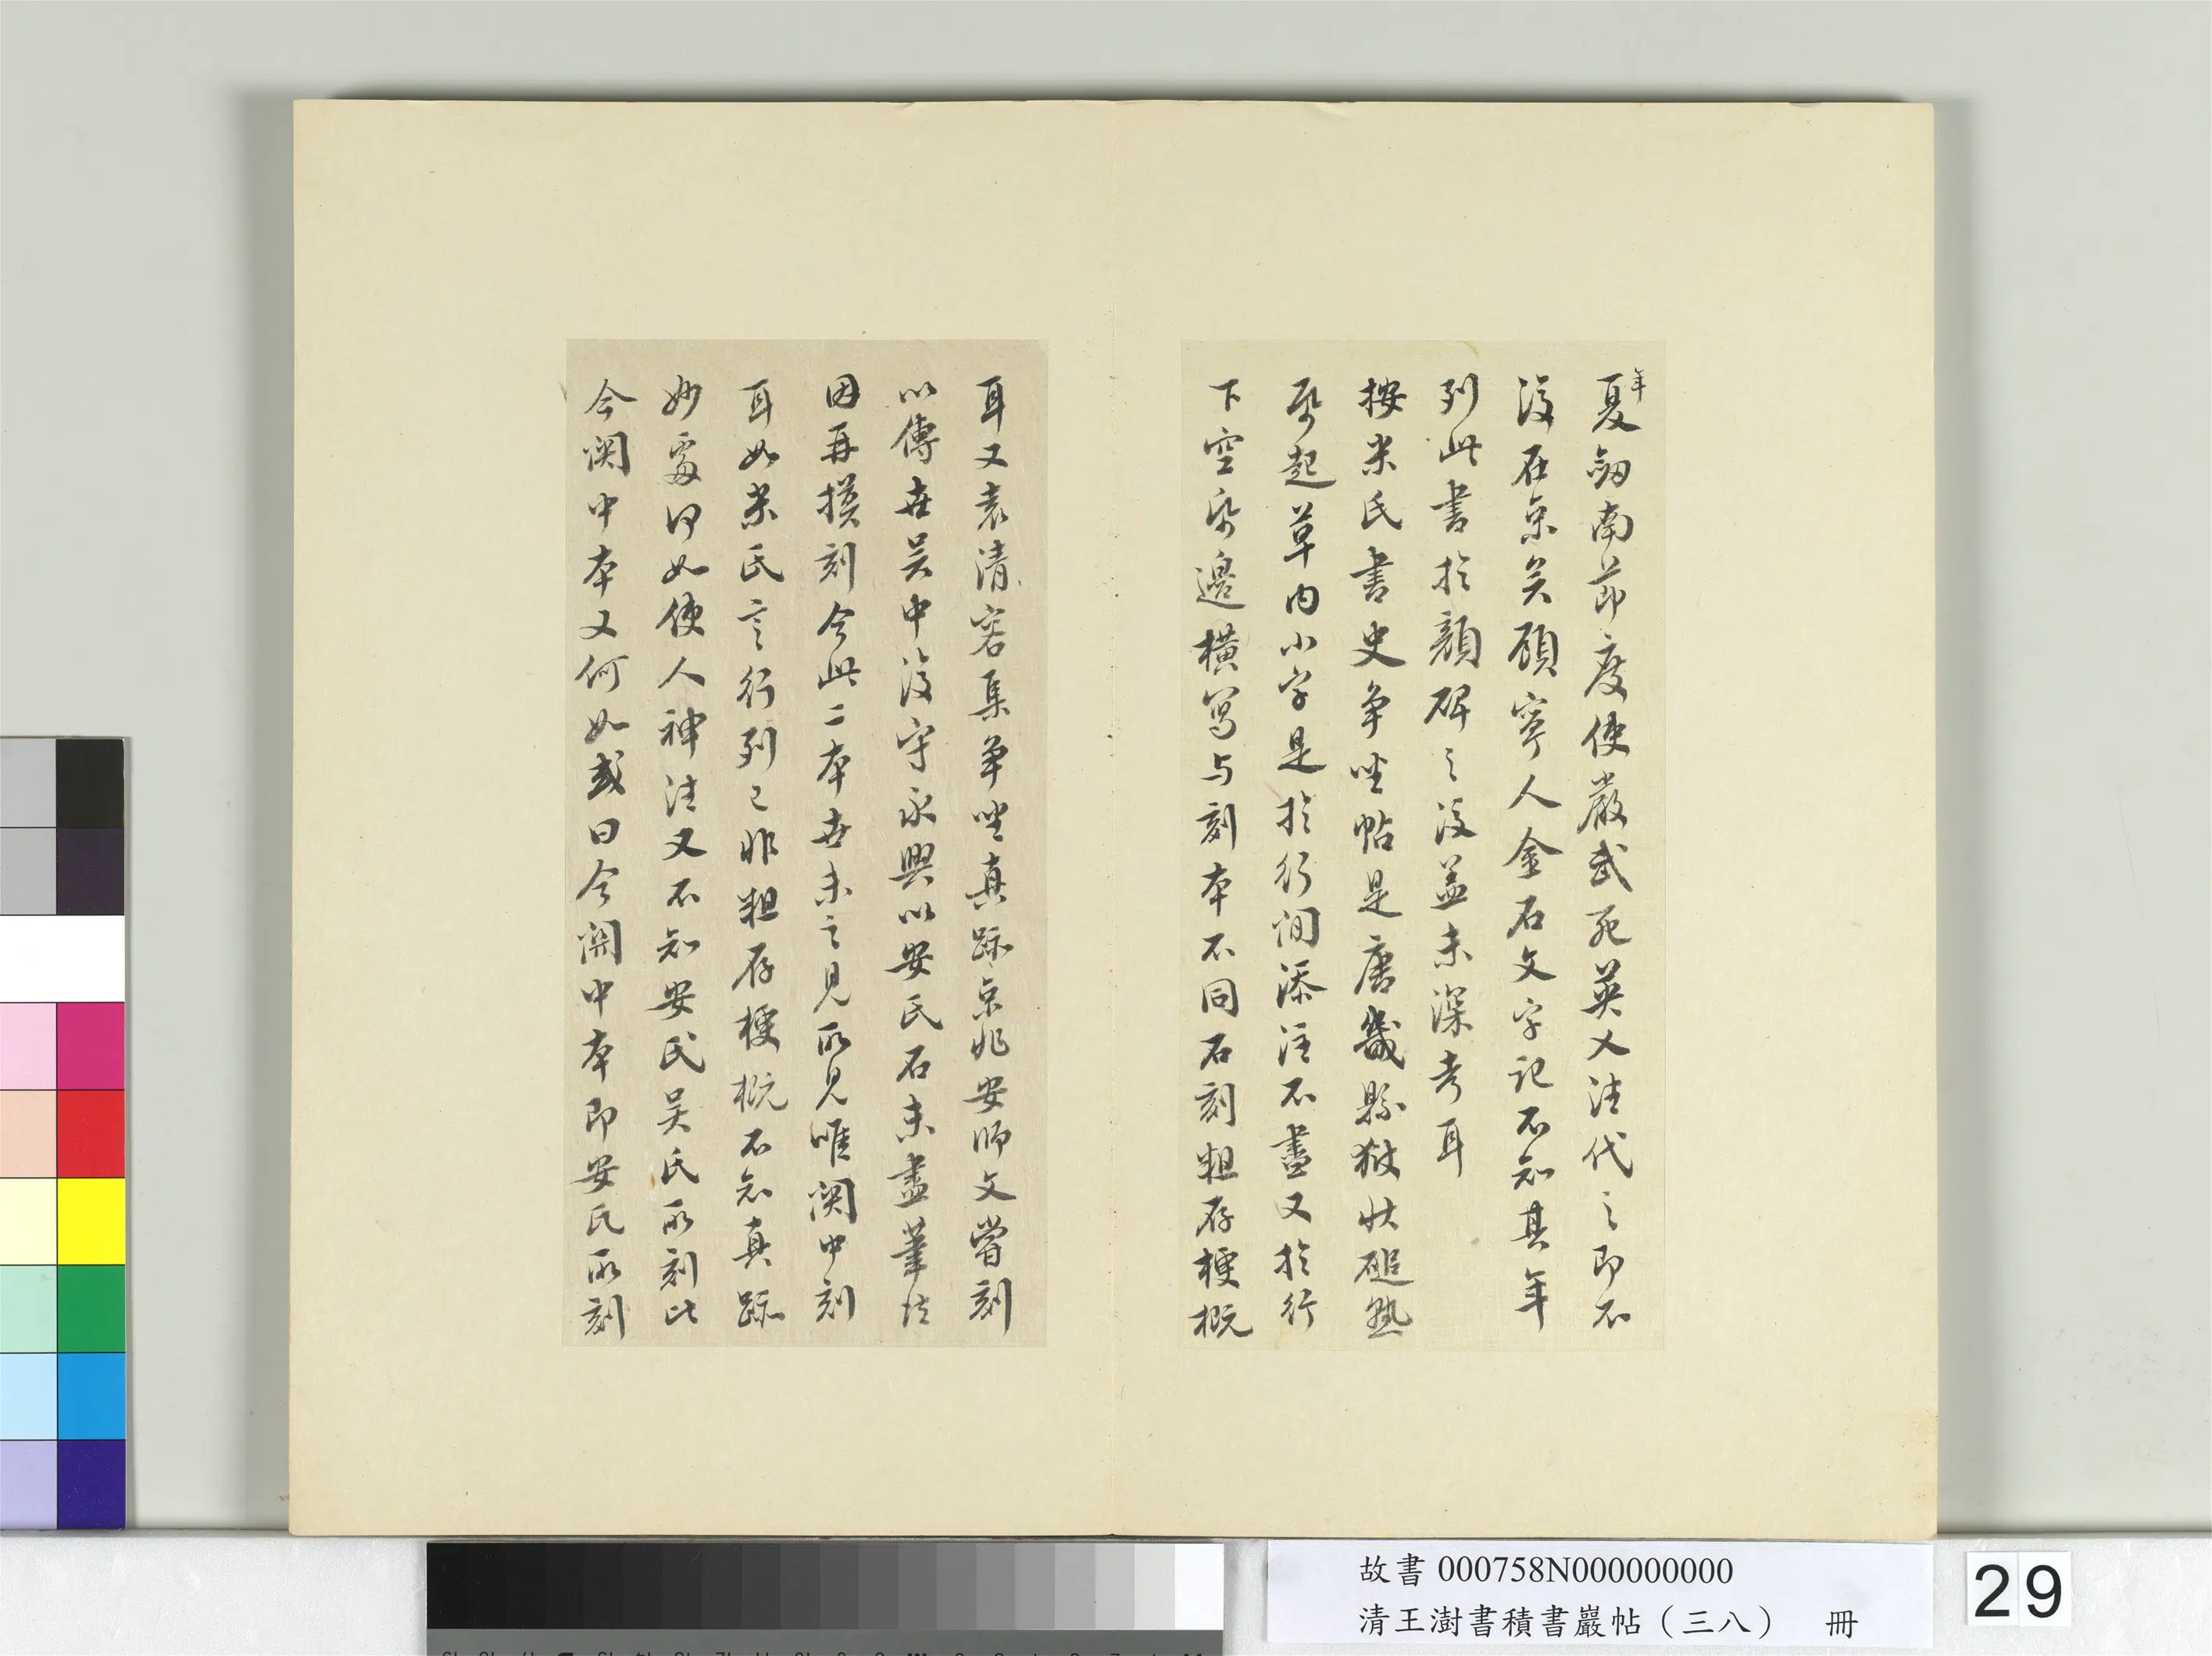 年
夏劔南節度使嚴武死英乂往代之即不
復在京矣顧寧人金石文字記不知其年
列此書於顏碑之後蓋未深考耳
按米氏書史争坐帖是唐畿縣獄狀磓熟
紙起草内小字是於行間添注不盡又於行
下空紙邊橫寫与刻本不同石刻粗存梗概
耳又袁清容集争坐真跡京兆安師文嘗刻
以傳世吴中復守永興以安氏石未盡筆法
因再摸刻今此二本世未之見所見唯関中刻
耳如米氏言行列已非粗存梗概不知真跡
妙處何如使人神往又不知安氏吴氏所刻比
今関中本又何如或曰今関中本即安氏所刻
故書 000758N000000000
清王澍書積書巖帖（三八） 冊
29